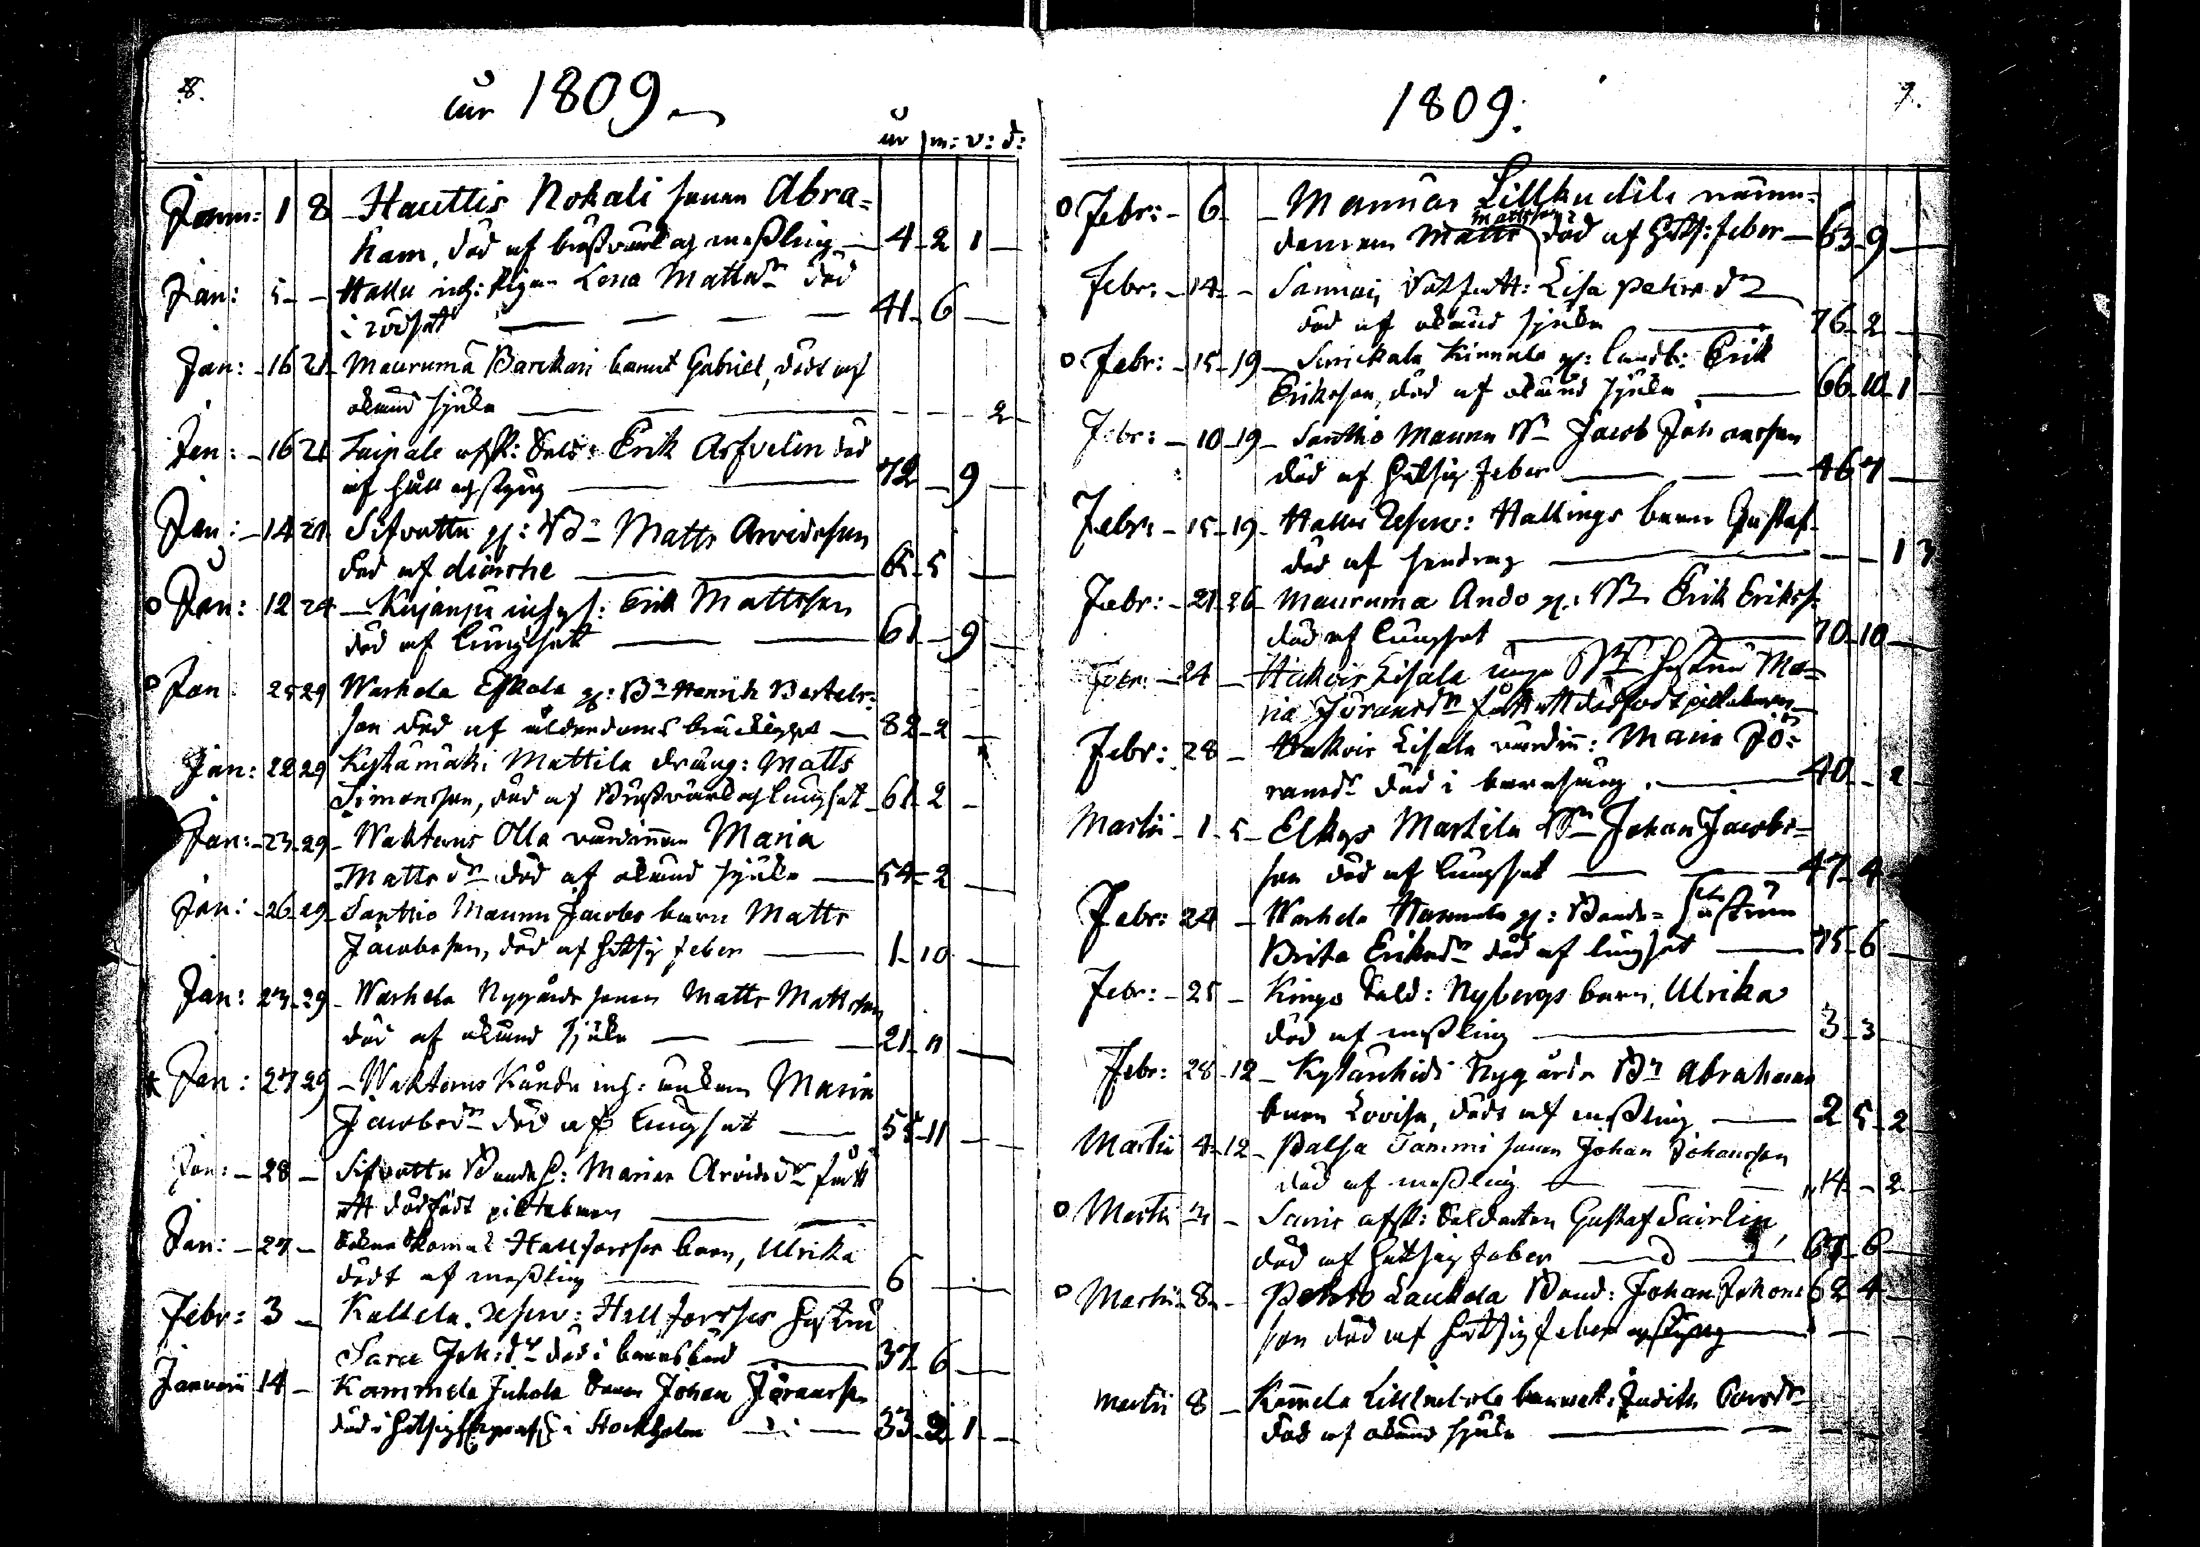 8.
år 1809.
år m: v: d:
Janu: 1 8 Hauttis Nokali sonen Abra=
ham, död af bröstvärk och meßling 4 2 1
Jan: 5 Hallu inh: Pigan Lena Mattsdr död
i rödsot 41 6
Jan: 16 21 Mauruma Barckari barnet Gabriel, död af
okänd sjuka 2
Jan: 16 21 Taipale afsk: Sold: Erik Asfvelin död
af håll och styng 72 9
Jan: 14 21 Sifvattu gl: Bdn Matts Arvidsson
död af diarrhe 65 5
o Jan: 12 24 Kujanpä inhys: Erik Mattsson
död af lungsot 61 9
o Jan 25 29 Warhela Eskola gl: Bn Henrik Bertels=
son död af ålderdoms bräcklighet 82 2
Jan: 22 29 Kylämäki Mattila dräng: Matts
Simonsson, död af Bröstvärk och lungsot 61 2
Jan: 23 29 Waktens Olla värdinnan Maria
Mattsdr död af okänd sjuka 54 2
Jan: 26 29 Santtio Maunu Jacobs barn Matts
Jacobsson, död af hetsig feber 1 10
Jan: 27 29 Warhela Nygårds sonen Matts Mattsson
död af okänd sjuka 21 11
x Jan: 27 29 Waktens inh: enkan Maria
Jacobsdr död af lungsot 55 11
Jan: 28 Sifvattu Bonde h: Marias Arvidsdr fött
ett dödfödt piltebarn
Jan: 27 Hallforsses barn, Ulrika
dödt af meßling 6
Febr: 3 Kallela reserv: Hallforsses hustru
Sara Joh:dr död i barnsbörd 37 6
Januarii 14 Kammela Juhola sonen Johan Jöransson
död i hetsig i Stockholm 33 2 1
9.
1809.
o Febr: 6 Mannas Lillkudila nämn=
Mattsson
demannen Matts död af hets: feber 63 9
Febr: 14 Sannais rotfatt: Lisa Petersdr
död af okänd sjuka 76 2
o Febr: 15 19 Sunickala Kinnala gl: landb: Erik
Eriksson, död af okänd sjuka 66 10 1
Febr: 10 19 Santtio Maunu Bn Jacob Johansson
död af hetsig feber 46 7
Febr: 15 19 Hallu Reserv: Hallings barn Gustaf
död af slag 1 3
Febr: 21 26 Mauruma Ando gl: Bn Erik Eriks:
död af lungsot 70 10
Febr: 24 Hakois Lisala unga Bns hustru Ma=
ria Jöransdr fött ett dödfödt piltebarn
Febr: 28 Hakois Lisala värdin: Maria Jö=
ransdr död i barnsäng 40 2
Martii 1 5 Elkys Martila Bn Johan Jacobs=
son död af lungsot 47 4
Febr: 24 Warhela gl: Bonde= hustrun
Brita Eriksdr död af lungsot 75 6
Febr: 25 Kings Sold: Nybergs barn, Ulrika
död af meßling 3 3
Febr: 28 12 Kylänhidi Nygårds Bn Abrahams
barn Lovisa, död af meßling 2 5 2
Martii 4 12 Palsa Tammi sonen Johan Johansson
död af meßling 14 2
o Martii 3 Sanis afsk: Soldaten Gustaf Sairlin,
död af hetsig feber 67 6
o Martii 8 Pehto Laukola Bond: Johan Johans 62 4
son död af hetsig feber och styng
Martii 8 Kamela barnet: Judith
död af okänd sjuka